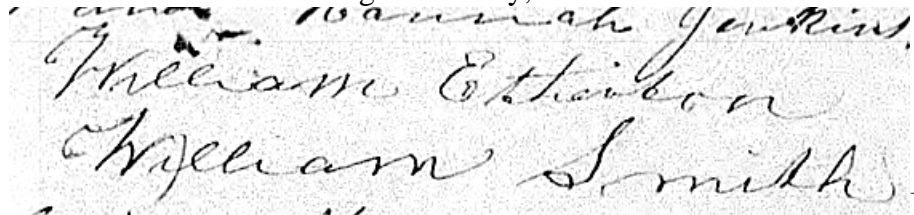 and Hannah Jenkins.
William Etherton
William Smith